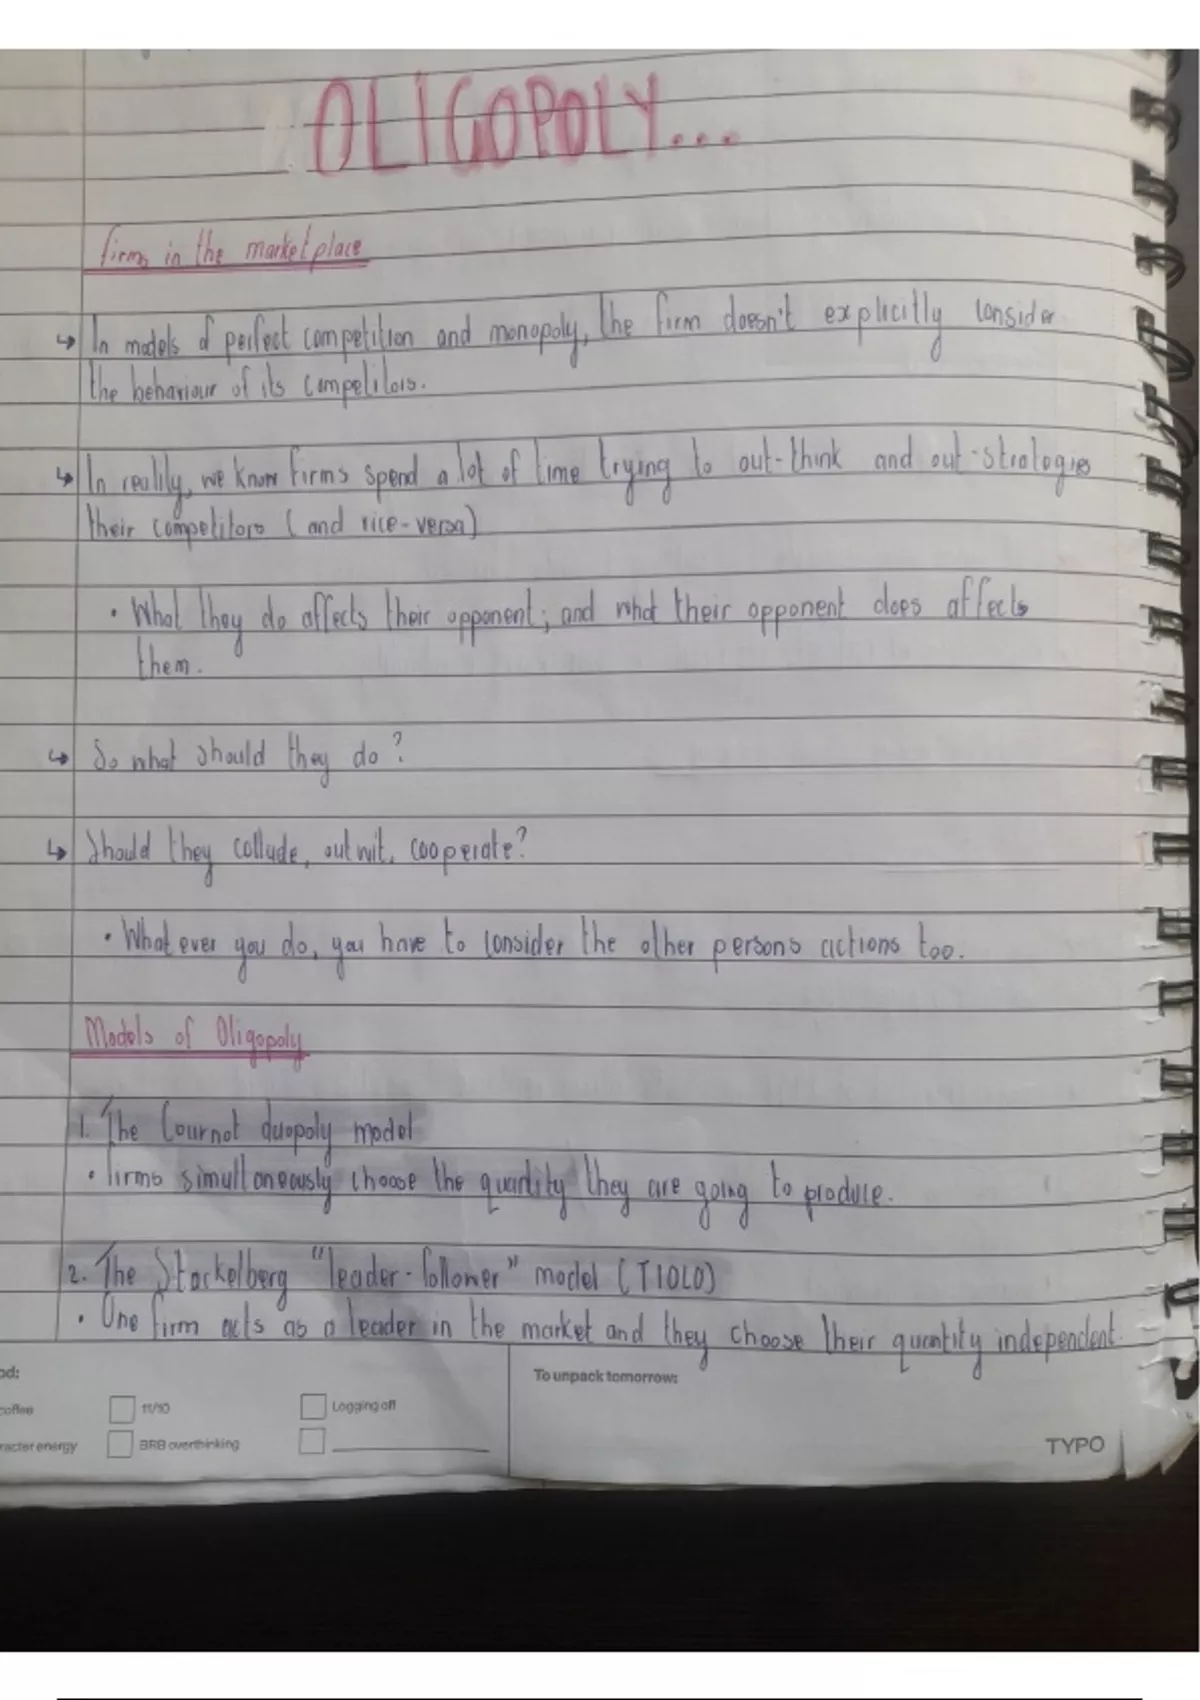 OLIGOPOLY...
firms in the marketplace
↳ In models of perfect competition and monopoly, the firm doesn't explicitly consider
the behaviour of its competitors.
↳ In reality, we know firms spend a lot of time trying to out-think and out-strategies
their competitors (and vice-versa)
• What they do affects their opponent; and what their opponent does affects
them.
↳ So what should they do?
↳ Should they collude, outwit, cooperate?
• What ever you do, you have to consider the other persons actions too.
Models of Oligopoly
1. The Cournot duopoly model
• Firms simultaneously choose the quantity they are going to produce.
2. The Stackelberg "leader-follower" model (TIOLO)
• One firm acts as a leader in the market and they choose their quantity independent.
od: To unpack tomorrow:
coffee 11/10 Logging off
racter energy BRB overthinking
TYPO